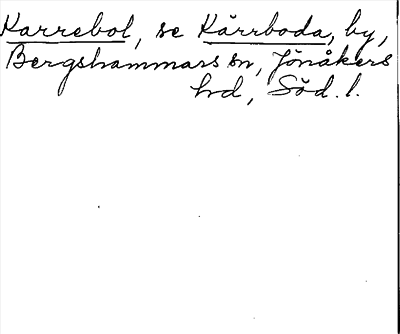 Karrebol, se Kärrboda, by,
Bergshammars sn, Jönåkers
hd, Söd. l.